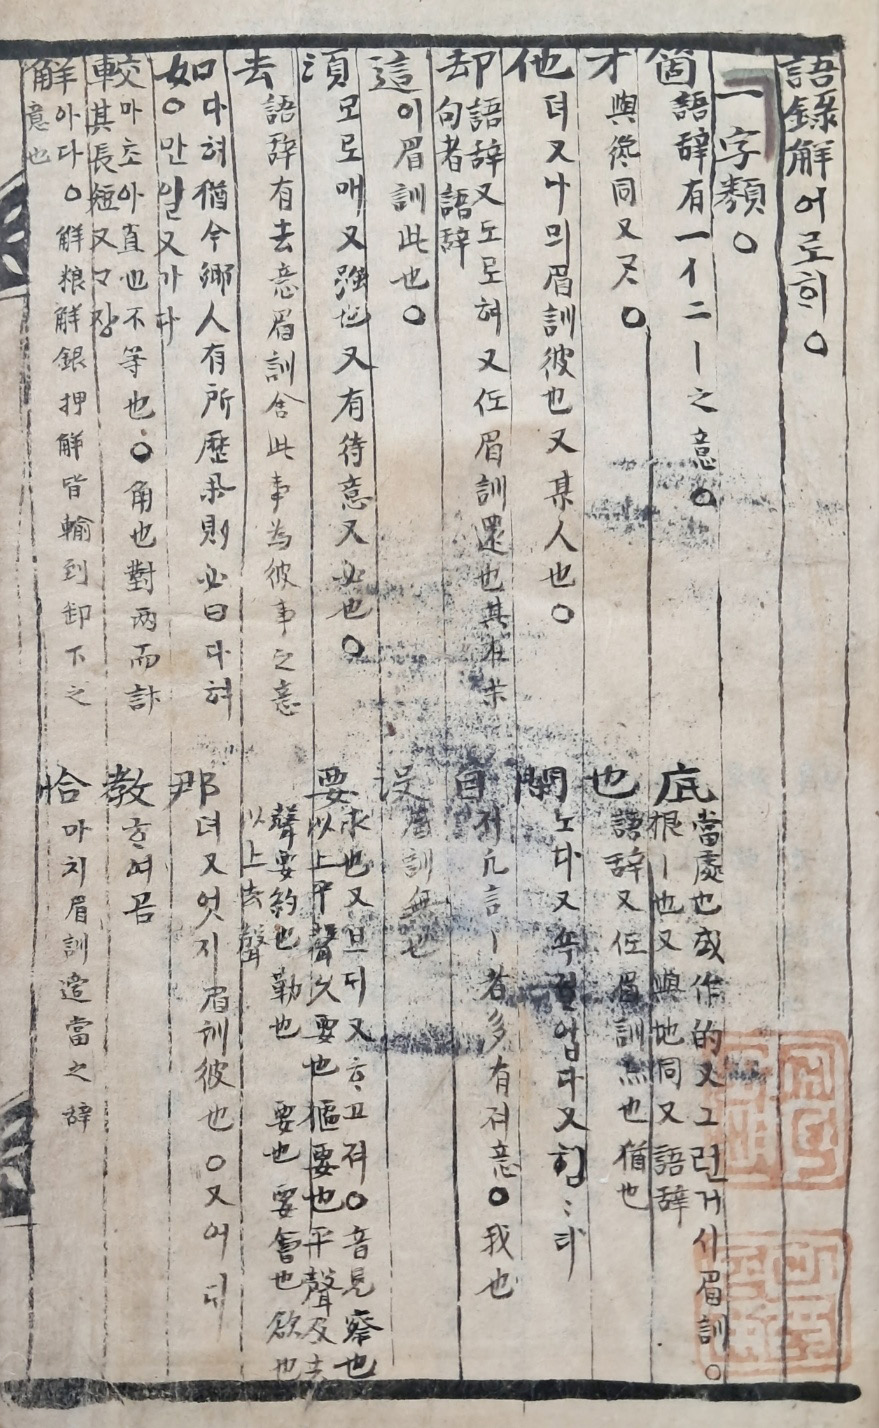 語錄解 어로ᄒᆡ ○
一字類 ○
箇 語辭有一个二丨之意 ○
底 當處也或作的又그런거시眉訓 ○ 根丨也又與地同又語辭
才 與纔同又ᄀᆞᆺ ○
也 語辭又在眉訓亦也猶也
他 뎌又나믜眉訓彼也又某人也 ○
閒 노다又쇽졀업다又힘힘타
却 語辭又도로혀又在眉訓還也其在末句者語辭
自 저凡言丨者多有저意 ○ 我也
這 이眉訓此也 ○
沒 眉訓無也
須 모로매又强也又有待意又必也 ○
要 求也又브ᄃᆡ又ᄒᆞ고져 ○ 音見察也以上平聲久要也樞要也平聲及去聲要約也勒也 要也要會也欲也以上去聲
去 語辭有去意眉訓舍此事爲彼事之意
如 다혀猶今鄉人有所歷擧則必曰다혀 ○ 만일又가다
那 뎌又엇지眉訓彼也 ○ 又어ᄃᆡ
較 마초아直也不等也 ○ 角也對兩而計其長短又ᄀᆞ장
教 ᄒᆞ여곰
解 아다 ○ 解粮解銀押解皆輸到卸下之意也
恰 마치眉訓適當之辭